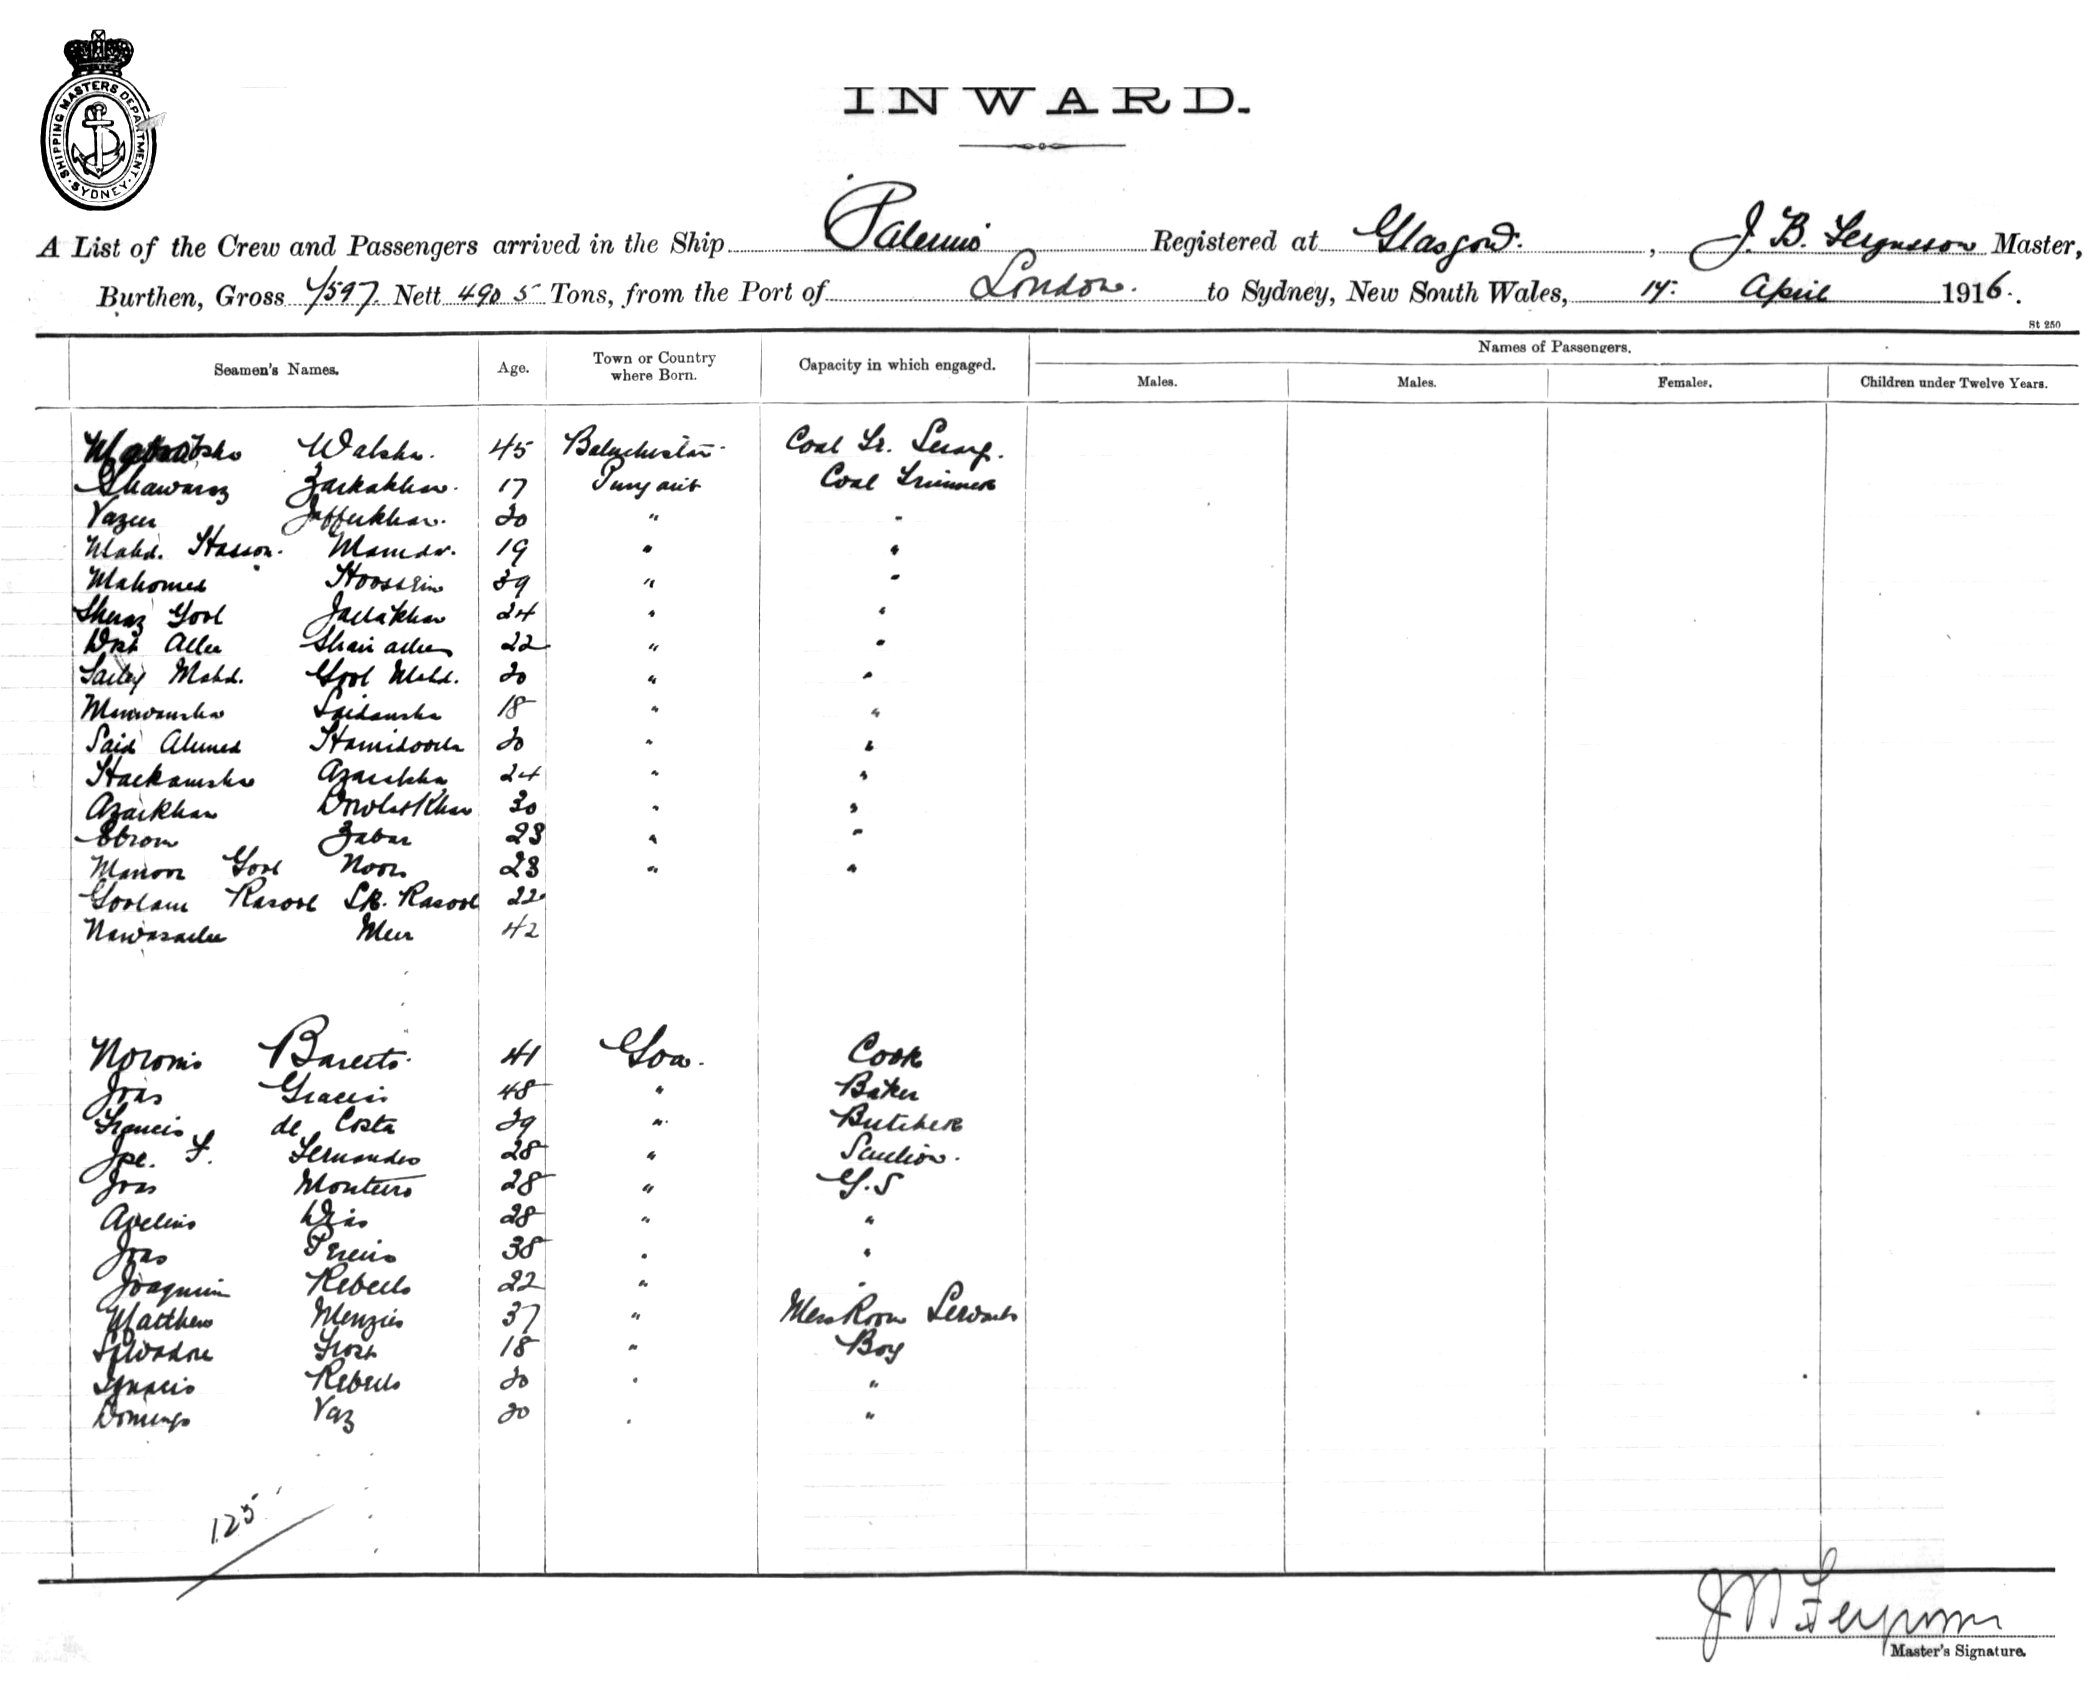 SHIPPING MASTERS DEPARTMENT. SYDNEY
INWARD.
A List of the Crew and Passengers arrived in the Ship Palermo Registered at Glasgow. , J. B. Fergusson Master,
Burthen, Gross 7597 Nett 4905 Tons, from the Port of London. to Sydney, New South Wales, 14: April 1916.
St 250
Seamen's Names. Age. Town or Country where Born. Capacity in which engaged. Names of Passengers.
Males. Males. Females. Children under Twelve Years.
Walsha. 45 Baluchistan Coal Tr. Serang.
Zarkakhan. 17 Coal Trimmer
Vazeer Jafferkhan. 20 " "
Mahd. Hasson. 19 " "
Mahomed Hoossein 39 " "
Gool 24 " "
Allee 22 " "
Mahd. Gool Mahd. 20 " "
Saidansha 18 " "
Said Ahmed Hamidoola 20 " "
24 " "
Azarkhan Dowlatkhan 30 " "
Zabar 23 " "
Gool Noor 23 " "
Goolam Rasool Sk. Rasool 22
Meer 42
Noronio Baretto. 41 Goa. Cook
Joas 48 " Baker
Francis de Costa 39 " Butcher
Joe. F. Fernandes 28 " Scullion.
Joas Monteiro 28 " G.S
Avelino Dias 28 " "
Joas 38 " "
Joaquim Rebello 22 " "
Matthew Menzies 37 " Mess Room Servant
Salvadore 18 " Boy
Ignacio Rebello 20 " "
Domingo Vaz 20 " "
125
Master's Signature.